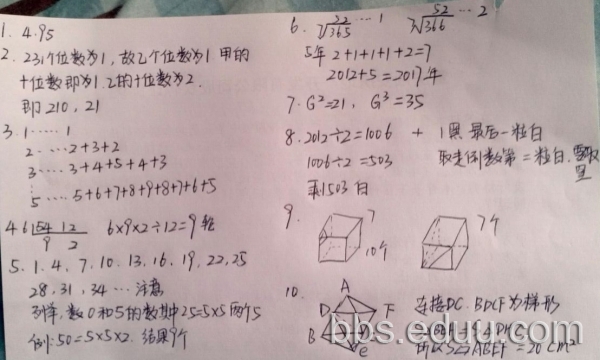 1. 4.95
2. 231个位数为1，故乙个位数为1 甲的
十位数即为1. 乙的十位数为2.
即 210, 21
3. 1 …… 1
2 …… 2+3+2
3 …… 3+4+5+4+3
⋮
5 …… 5+6+7+8+9+8+7+6+5
4 6 54 12
9 2
6×9×2÷12=9 轮
5. 1. 4. 7. 10. 13. 16. 19. 22. 25
28. 31. 34 … 注意
数0和5的数 其中25=5×5 两个5
例: 50=5×5×2. 结果9个
6. 7 52 365 … 1
7 52 366 … 2
5年 2+1+1+1+2=7
2012+5=2017年
7. G²=21, G³=35
8. 2012÷2=1006 + 1黑 最后一粒白
1006÷2=503 取走倒数第二粒白.
剩503 白
9.
7
10个
7个
10.
A
D F
B
E
连接DC. BDCF为梯形
= 20 cm²
bbs.eduu.com